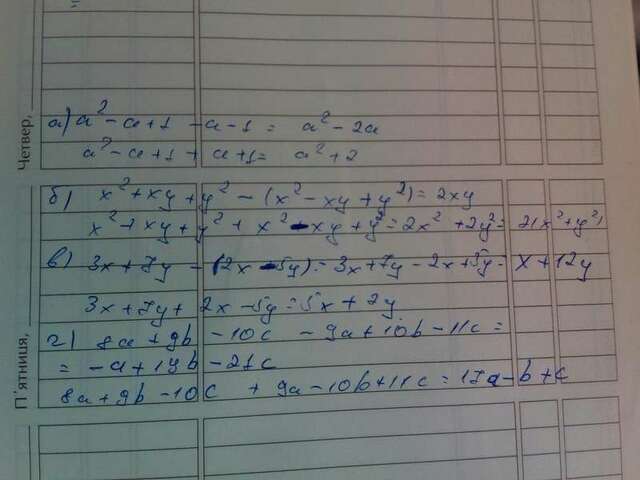 =
Четвер,
а) a² - a + 1 - a - 1 = a² - 2a
a² - a + 1 + a + 1 = a² + 2
б) x² + xy + y² - (x² - xy + y²) = 2xy
x² + xy + y² + x² - xy + y² = 2x² + 2y² = 2(x² + y²)
в) 3x + 7y - (2x - 5y) = 3x + 7y - 2x + 5y = x + 12y
П'ятниця,
3x + 7y + 2x - 5y = 5x + 2y
г) 8a + 9b - 10c - 9a + 10b - 11c =
= -a + 19b - 21c
8a + 9b - 10c + 9a - 10b + 11c = 17a - b + c